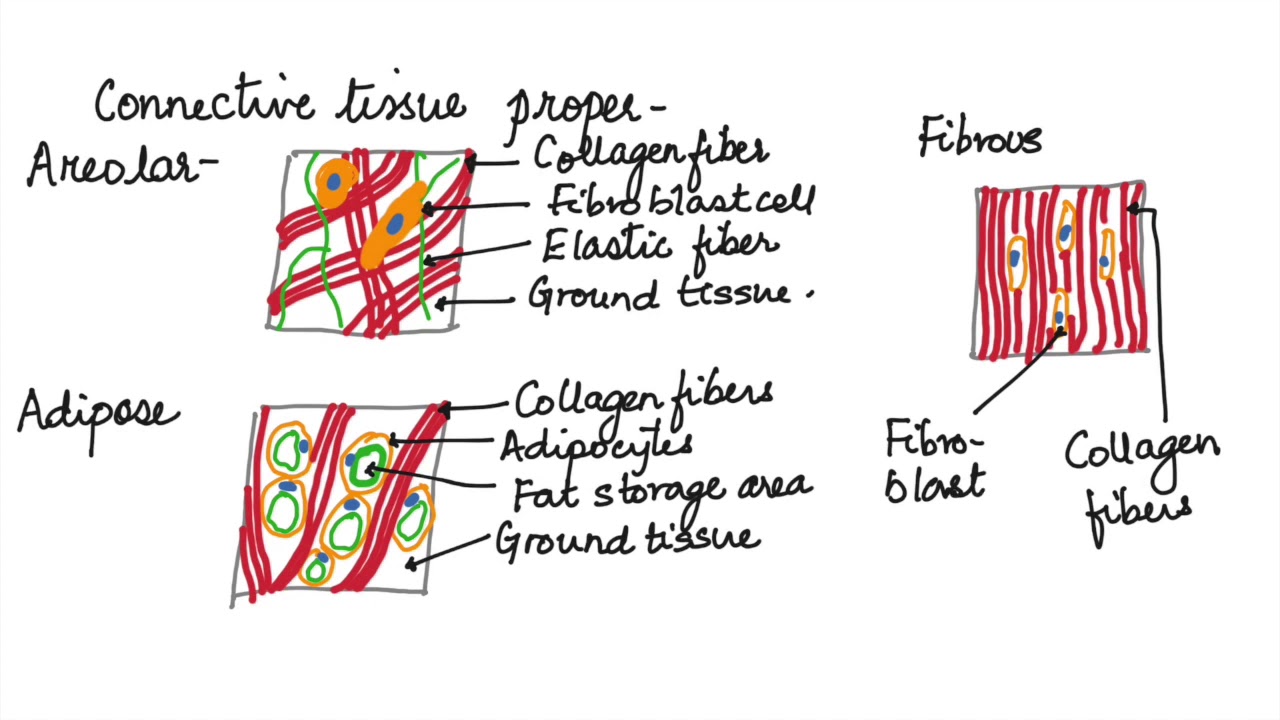 Connective tissue proper-
Areolar-
Collagen fiber
Fibroblast cell
Elastic fiber
Ground tissue .
Adipose
Collagen fibers
Adipocytes
Fat storage area
Ground tissue
Fibrous
Fibro-
blast
Collagen
fibers